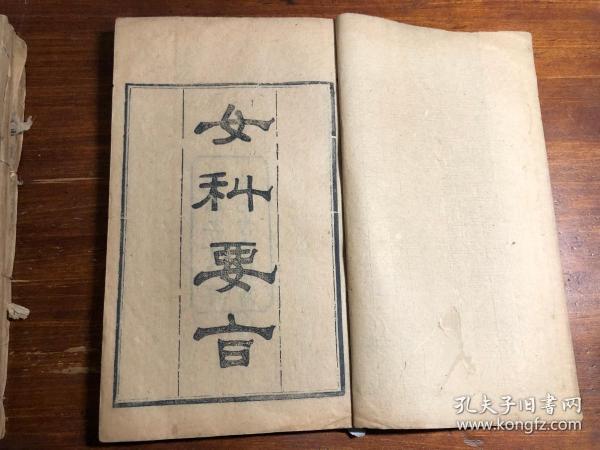 女科要旨
孔夫子旧书网
www.kongfz.com